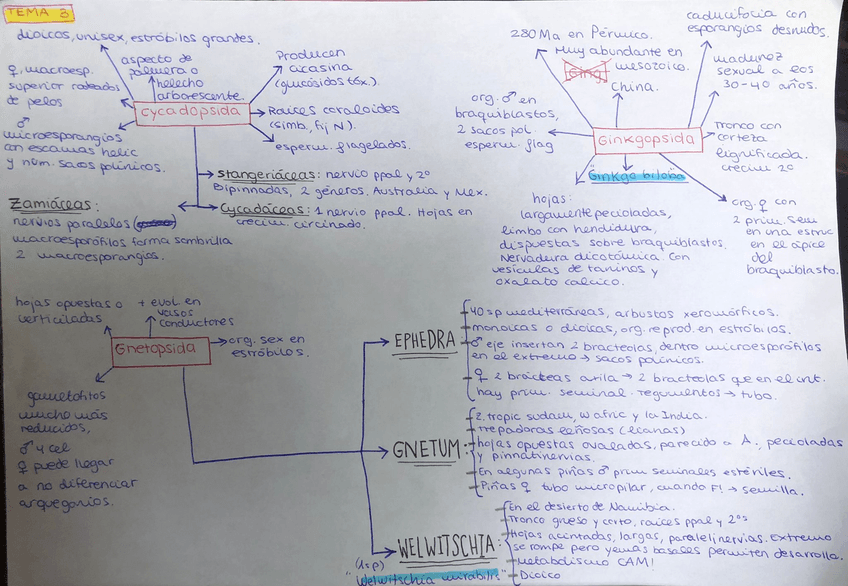 TEMA 3
dioicos, unisex, estróbilos grandes.
♀, macroesp.
superior rodeados
de pelos
aspecto de
palmera o
helecho
arborescente.
Producen
cicasina
(glucósidos tóx.)
Cycadopsida
Raíces coraloides
(simb, fij N).
esperm. flagelados.
♂
microesporangios
con escamas helic
y num. sacos polínicos.
Stangeriáceas: nervio ppal y 2º
Bipinnadas, 2 géneros. Australia y Mex.
Cycadáceas: 1 nervio ppal. Hojas en
crecim. circinado.
Zamiáceas:
nervios paralelos
macroesporófilos forma sombrilla
2 macroesporangios.
280 Ma en Pérmico.
Muy abundante en
mesozoico.
Ging
China.
caducifolia con
esporangios desnudos.
madurez
sexual a los
30-40 años.
org. ♂ en
braquiblastos,
2 sacos pol.
esperm. flag
Ginkgopsida
Tronco con
corteza
lignificada.
crecim 2º
Ginkgo biloba
org. ♀ con
2 prim. sem
en una estruc
en el ápice
del
braquiblasto.
hojas:
largamente pecioladas,
limbo con hendidura,
dispuestas sobre braquiblastos.
Nervadura dicotómica. con
vesículas de taninos y
oxalato cálcico.
hojas opuestas o
verticiladas
+ evol en
vasos
conductores
Gnetopsida
org. sex en
estróbilos.
gametofitos
mucho más
reducidos,
♂ 4 cel
♀ puede llegar
a no diferenciar
arquegonios.
EPHEDRA
40 sp mediterráneas, arbustos xeromórficos.
monoicas o dioicas, org. reprod. en estróbilos.
♂ eje insertan 2 bracteolas, dentro microesporófilos
en el extremo → sacos polínicos.
♀ 2 brácteas axila → 2 bracteolas que en el int.
hay prim. seminal. tegumentos → tubo.
GNETUM:
Z. tropic sudam, W afric y la India.
Trepadoras leñosas (lianas)
hojas opuestas ovaladas, parecido a A., pecioladas
y pinnatinervias.
En algunas piñas ♂ prim seminales estériles.
Piñas ♀ tubo micropilar, cuando F! → semilla.
WELWITSCHIA:
(1sp)
"Welwitschia mirabilis"
En el desierto de Namibia.
Tronco grueso y corto, raíces ppal y 2ºs
Hojas acintadas, largas, paralelinervias. Extremo
se rompe pero yemas basales permiten desarrollo.
Metabolismo CAM!
Dioico